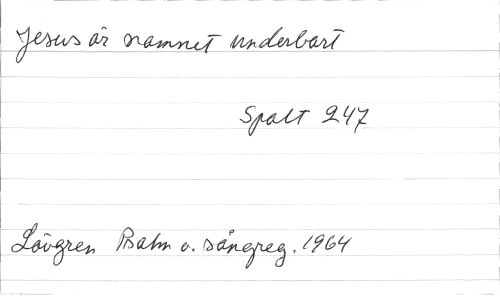 Jesus är namnet underbart
Spalt 247
Lövgren Psalm o. sångreg. 1964